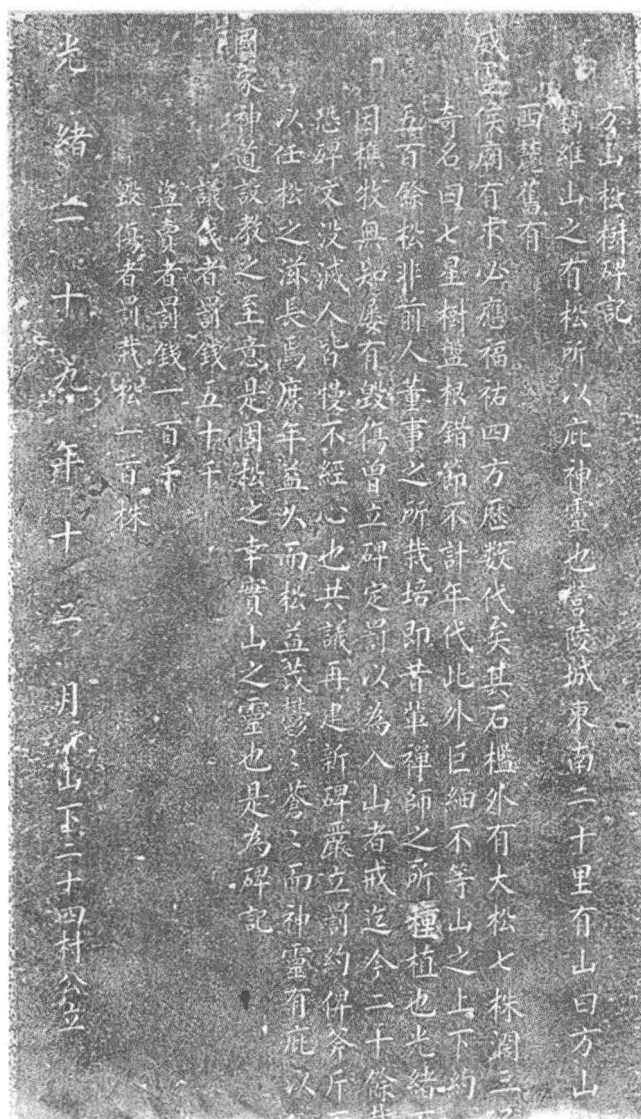 方山松樹碑記
竊維山之有松所以庇神靈也營陵城東南二十里有山曰方山
西麓舊有
威靈侯廟有求必應福祐四方歷数代矣其石檻外有大松七株濶三
奇名曰七星樹盤根錯節不計年代此外巨細不等山之上下約
五百餘松非前人董事之所栽培即昔輩禪師之所種植也光緒
因樵牧無知屡有毀傷曾立碑定罰以為入山者戒迄今二十餘
恐碑文没滅人皆慢不經心也共議再建新碑嚴立罰約俾斧斤
以任松之滋長焉庶年益久而松益茂鬱〻蒼〻而神靈有庇以
國家神道設教之至意是固松之幸實山之靈也是為碑記
議伐者罰錢五十千
盜賣者罰錢一百千
毀傷者罰栽松一百株
光緒二十九年十二月 山下二十四村公立